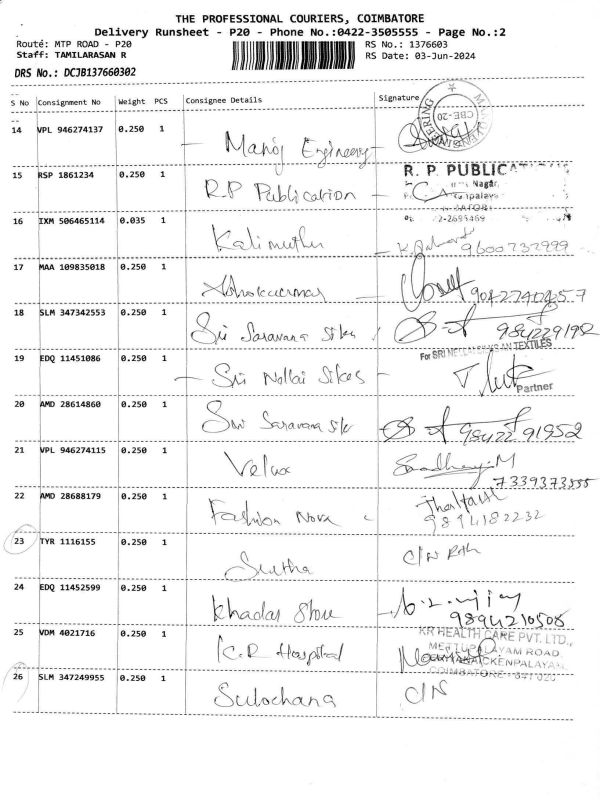 THE PROFESSIONAL COURIERS, COIMBATORE
Delivery Runsheet - P20 - Phone No.:0422-3505555 - Page No.:2
Route: MTP ROAD - P20 RS No.: 1376603
Staff: TAMILARASAN R RS Date: 03-Jun-2024
DRS No.: DCJB137660302
S No Consignment No Weight PCS Consignee Details Signature
14 VPL 946274137 0.250 1 Manoj Engineering
CBE-20
15 RSP 1861234 0.250 1 R.P Publication
R. P. PUBLICATIONS
Nagar,
16 IXM 506465114 0.035 1 Kalimuthu 9600737999
17 MAA 109835018 0.250 1 Ashokkumar
18 SLM 347342553 0.250 1 Sri Saravana silks
19 EDQ 11451086 0.250 1 Sri Nellai Silkes
For SRI NELLAI SILKS AN TEXTILES
Partner
20 AMD 28614860 0.250 1 Sri Saravana silk 98422 91952
21 VPL 946274115 0.250 1 Velux
7339373555
22 AMD 28688179 0.250 1 Fashion Nova
9814182232
23 TYR 1116155 0.250 1 Sutha C/N
24 EDQ 11452599 0.250 1 Khadar Store
9894210508
25 VDM 4021716 0.250 1 K.R Hospital
KR HEALTH CARE PVT. LTD.,
METTUPALAYAM ROAD,
COIMBATORE - 641 020
26 SLM 347249955 0.250 1 Sulochana C/N